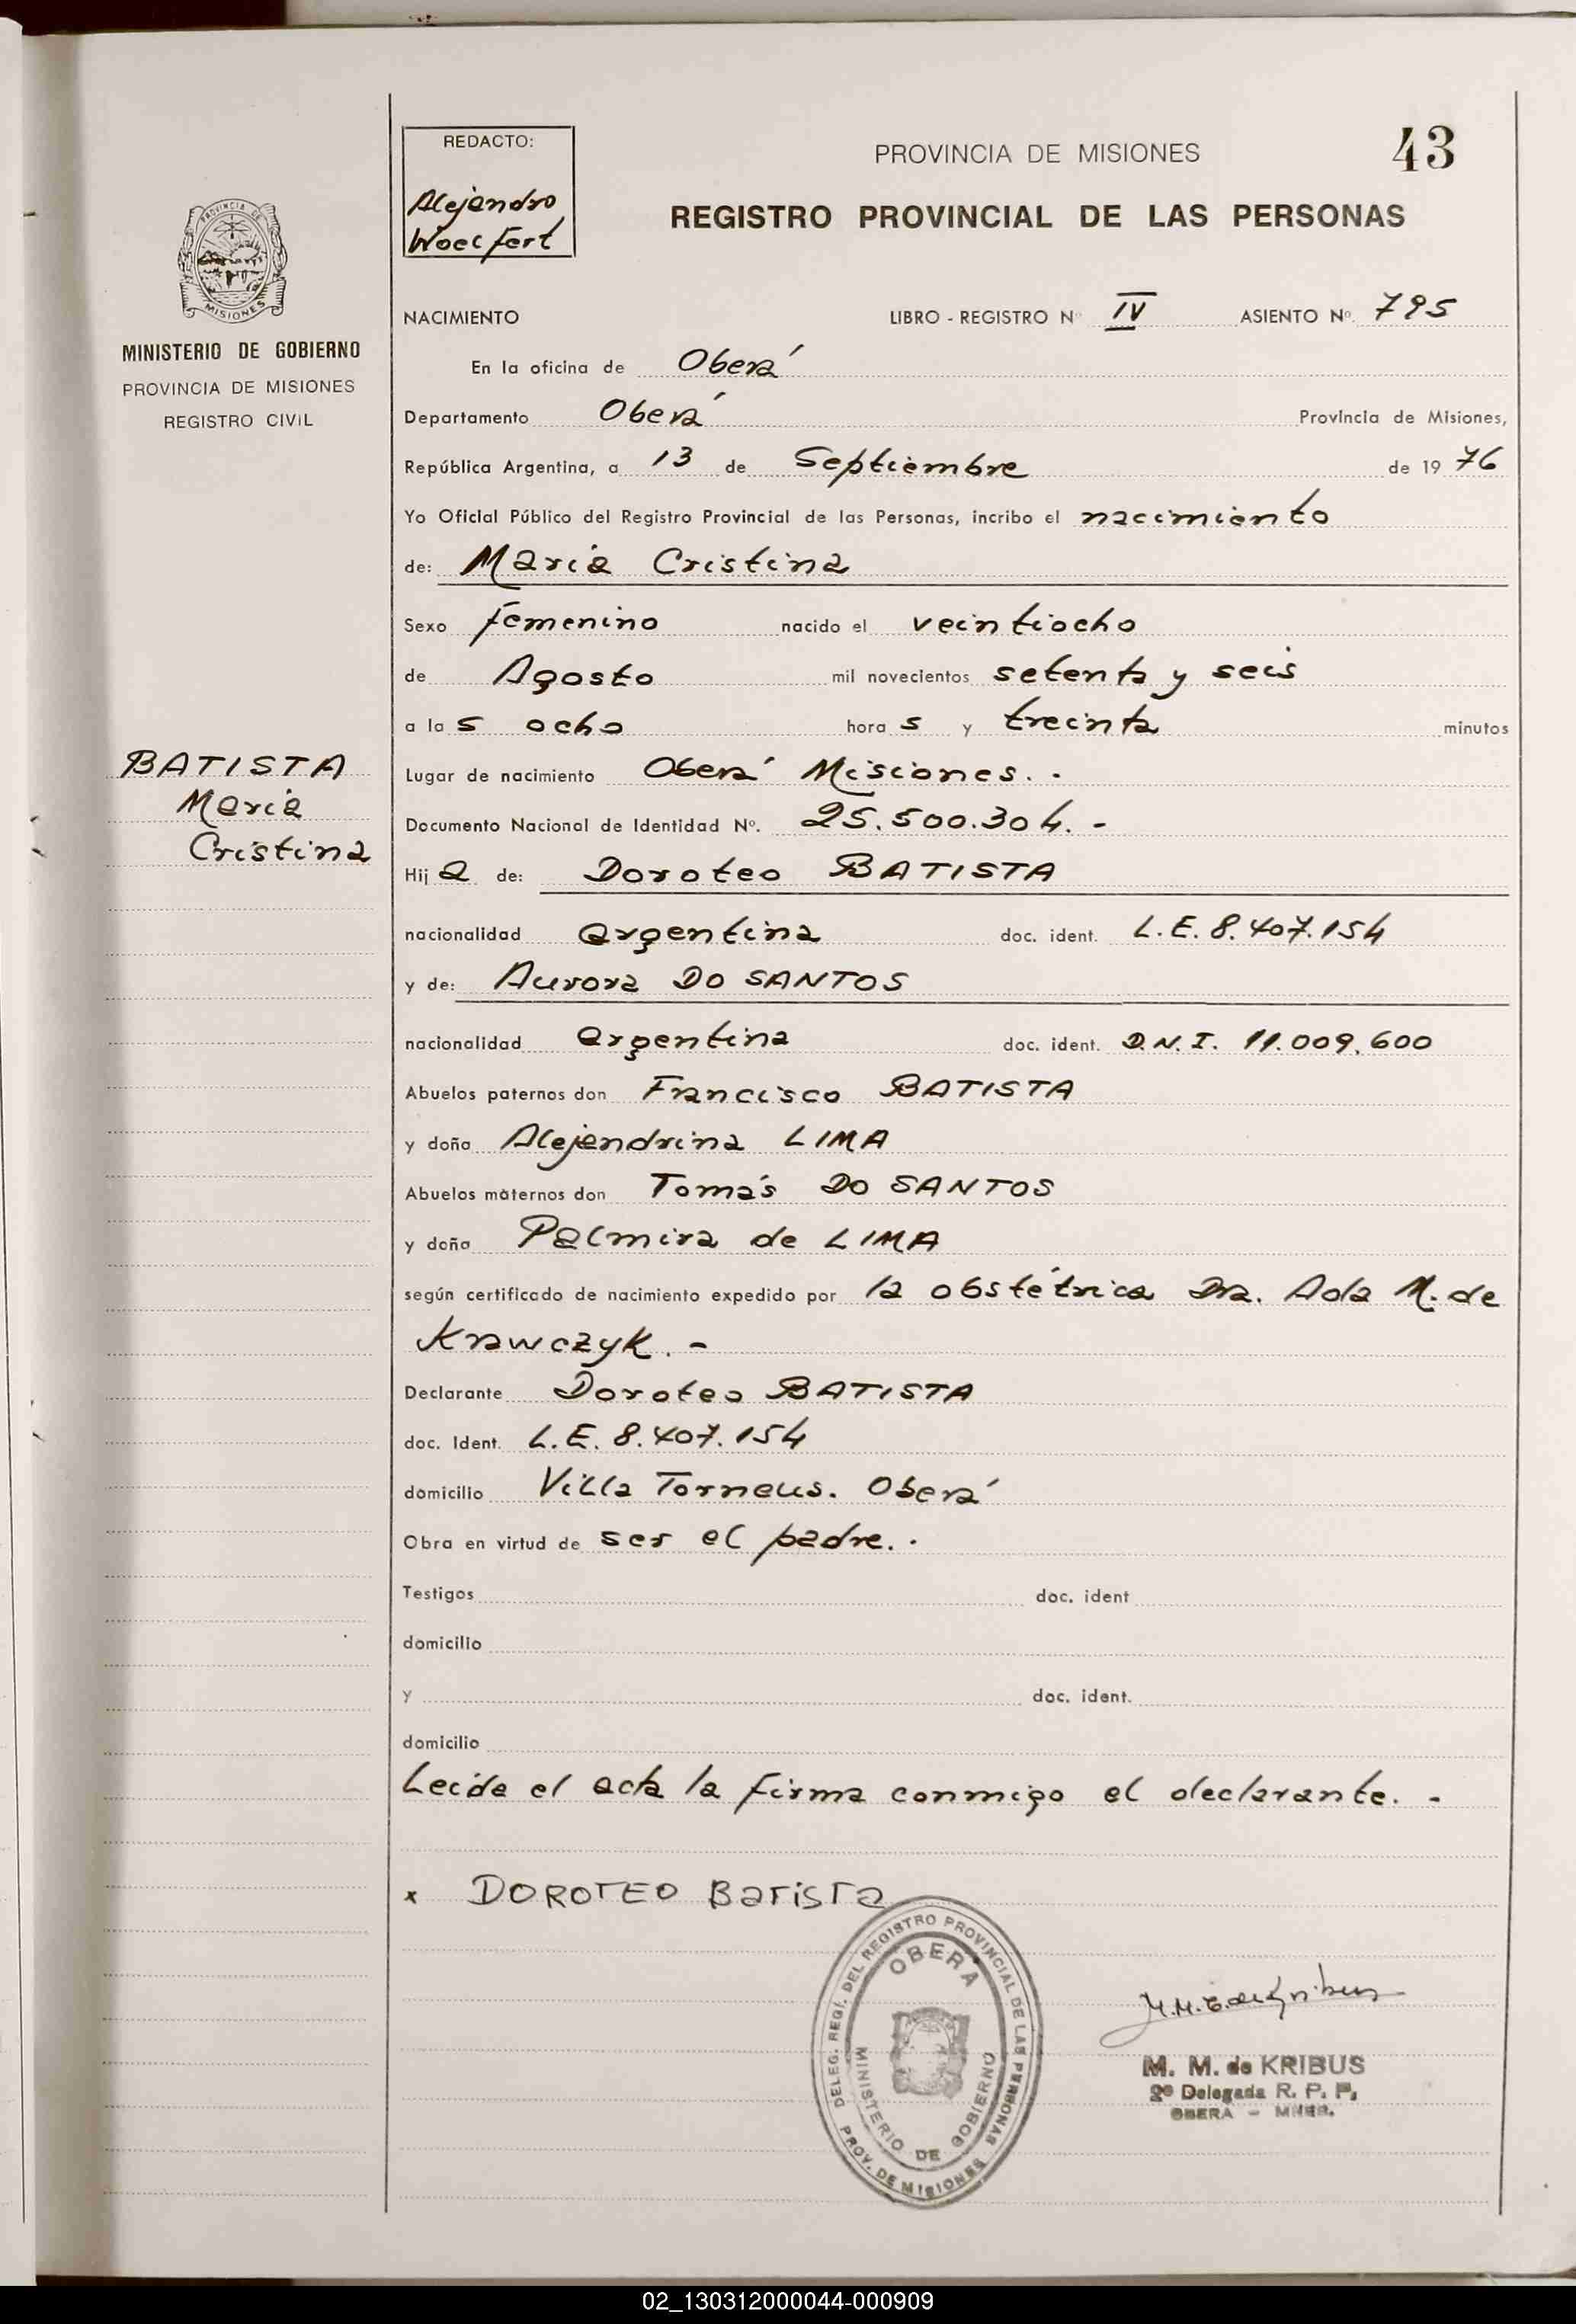 REDACTO:
Alejandro
Woelfert
PROVINCIA DE MISIONES
43
REGISTRO PROVINCIAL DE LAS PERSONAS
PROVINCIA DE
MISIONES
MINISTERIO DE GOBIERNO
PROVINCIA DE MISIONES
REGISTRO CIVIL
NACIMIENTO LIBRO - REGISTRO Nº IV ASIENTO Nº. 795
En la oficina de Oberá
Departamento Oberá Provincia de Misiones,
República Argentina, a 13 de Septiembre de 1976
Yo Oficial Público del Registro Provincial de las Personas, incribo el nacimiento
de: Maria Cristina
Sexo femenino nacido el veintiocho
de Agosto mil novecientos setenta y seis
a las ocho horas y treinta minutos
BATISTA
Maria
Cristina
Lugar de nacimiento Oberá Misiones. -
Documento Nacional de Identidad Nº. 25.500.304. -
Hija de: Doroteo BATISTA
nacionalidad argentina doc. ident. L.E. 8.407.154
y de: Aurora DO SANTOS
nacionalidad argentina doc. ident. D.N.I. 11.009.600
Abuelos paternos don Francisco BATISTA
y doña Alejandrina LIMA
Abuelos maternos don Tomás DO SANTOS
y doña Palmira de LIMA
según certificado de nacimiento expedido por la obstétrica Dra. Ada M. de
Krawczyk. -
Declarante Doroteo BATISTA
doc. Ident. L.E. 8.407.154
domicilio Villa Torneus. Oberá
Obra en virtud de ser el padre. -
Testigos doc. ident
domicilio
y doc. ident.
domicilio
Leída el acta la firma conmigo el declarante. -
x DOROTEO Batista
DELEG. REGI. DEL REGISTRO PROVINCIAL DE LAS PERSONAS
OBERA
MINISTERIO DE GOBIERNO
PROV. DE MISIONES
M. M. de KRIBUS
2º Delegada R. P. P.
OBERA - MNES.
02_130312000044-000909